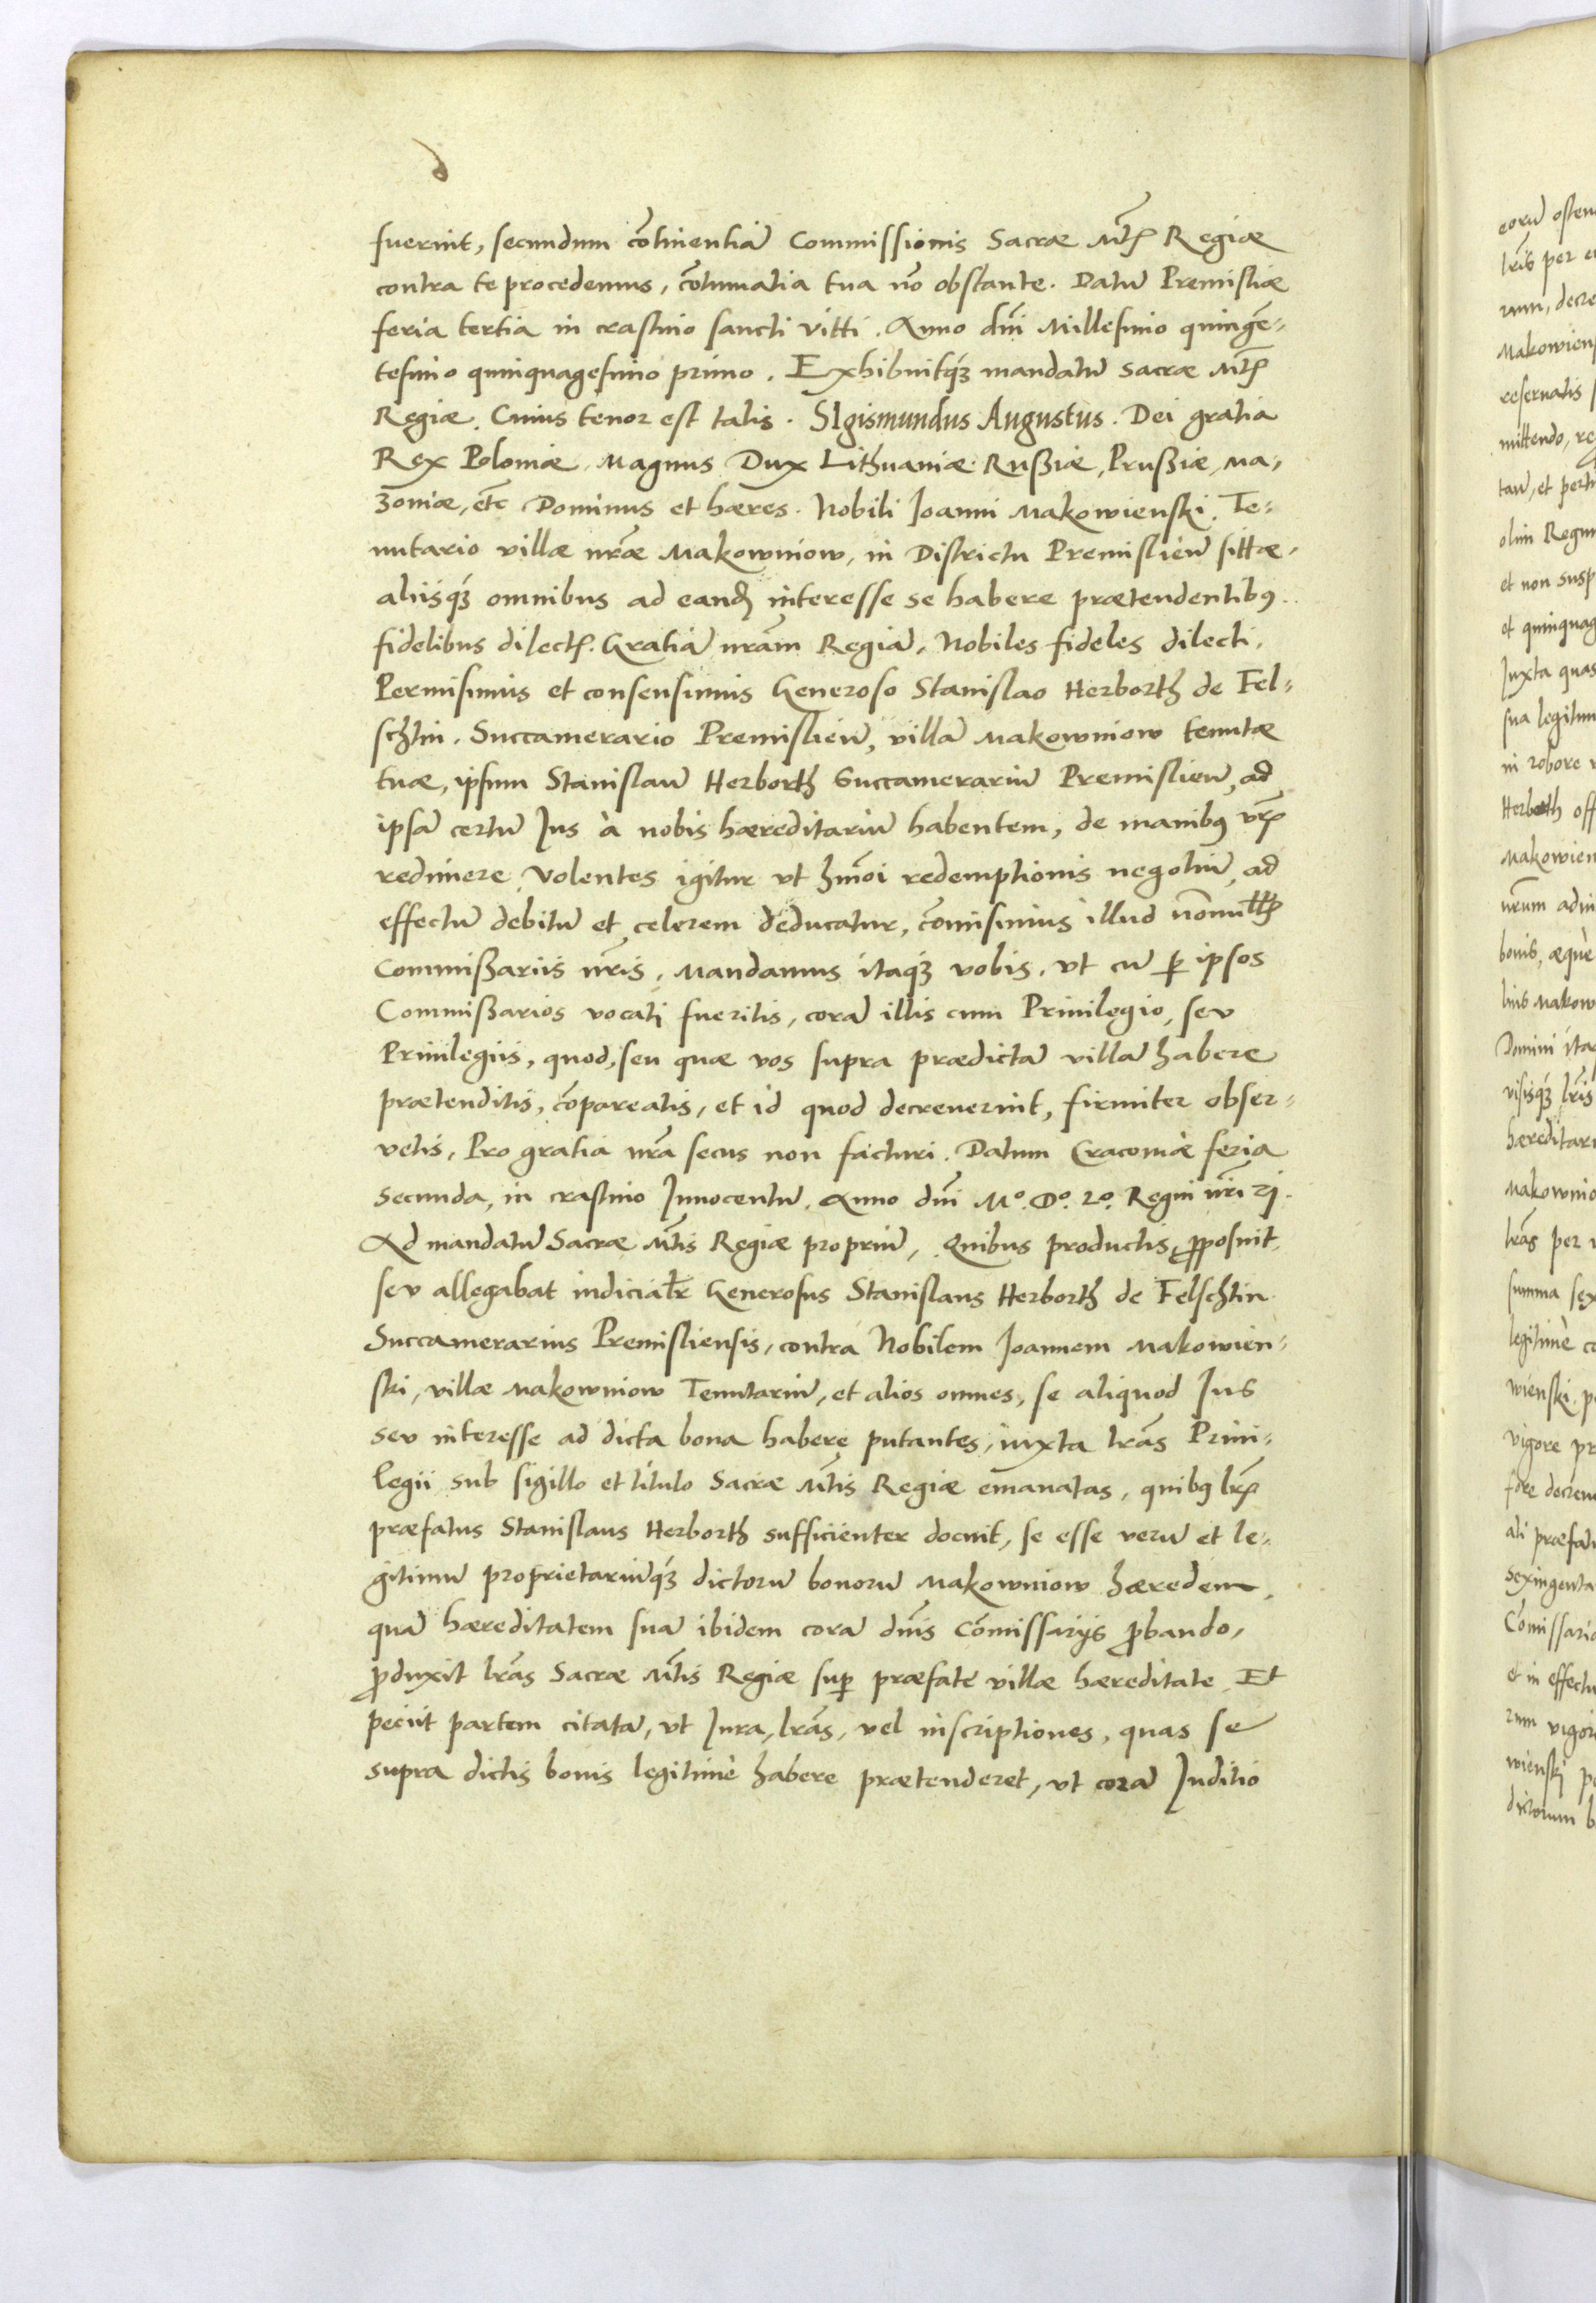 fuerint, secundum cõtinentiã Commissionis Sacræ Mt̃ʒ Regiæ
contra te procedemus, cõtumatia tua nõ obstante. Datũ Premisliæ
feria tertia in crastino sancti Vitti. Anno dñi Millesimo quingẽ-
tesimo quinquagesimo primo. Exhibuitqʒ mandatũ Sacræ Mt̃ʒ
Regiæ. Cuius tenor est talis. SIgismundus Augustus. Dei gratia
Rex Poloniæ, Magnus Dux Lithuaniæ. Rußiæ, Prußiæ, Ma,
zoniæ, etc̃ Dominus et hæres. Nobili Joanni Makowienski. Te-
nutario villæ nr̃æ Makowniow, in Districtu Premislieñ sittæ,
aliisqʒ omnibus ad eandʒ interesse se habere prætendentibꝰ.
fidelibus dilectʒ. Gratiã nrãm Regiã, Nobiles fideles dilecti,
Permisimus et consensimus Generoso Stanislao Herborth de Fel-
schtin. Succamerario Premislieñ, villã Makowniow tenutæ
tuæ, ipsum Stanislaũ Herborth Succamerariũ Premislieñ, ad
ipsã certũ Jus à nobis hæreditariũ habentem, de manibꝰ vr̃ʒ
redimere. Volentes igitur vt hm̃oi redemptionis negotiũ, ad
effectũ debitũ et celerem deducatur, cõmisimus illud nõnullʒ
Commißariis nr̃is. Mandamus itaqʒ vobis, vt cũ ꝑ ipsos
Commißarios vocati fueritis, corã illis cum Priuilegio, sev
Priuilegiis, quod, seu quæ vos supra prædictã villã habere
prætenditis, cõpareatis, et id quod decreuerint, firmiter obser-
vetis, Pro gratia nrã secus non facturi. Datum Cracouiæ feria
secunda, in crastino Innocentũ. Anno dñi Mº. Dº. 2º. Regni nr̃i 21.
Ad mandatũ Sacræ Mt̃is Regiæ propriũ, Quibus productis, ꝓposuit
sev allegabat iudicialr̃ Generosus Stanislaus Herborth de Felschtin
Succamerarius Premisliensis, contra Nobilem Joannem Makowien-
ski, villæ Makowniow Tenutariũ, et alios omnes, se aliquod Jus
sev interesse ad dicta bona habere putantes, iuxta lrãs Priui-
legii sub sigillo et titulo Sacræ Mt̃is Regiæ emanatas, quibꝰ lr̃ʒ
præfatus Stanislaus Herborth sufficienter docuit, se esse verũ et le-
gitimũ proprietariũqʒ dictorũ bonorũ Makowniow hæredem,
quã hæreditatem suã ibidem corã dñis Cõmissarijs ꝓbando,
ꝓduxit lrãs Sacræ Mt̃is Regiæ suꝑ præfate villæ hæreditate. Et
peciit partem citatã, vt Jura, lrãs, vel inscriptiones, quas se
supra dictis bonis legitimè habere prætenderet, vt corã Juditio
eorũ osten
lr̃is per e
rum, decre
Makowien
reseruatis
mittendo, re
tañ, et perti
olim Regni
et non susp
et quinquag
Juxta quas
sua legitim
in robore
Herborth off
Makowien
nrũm adm
bonis, æquè
Domini ita
visisqʒ lr̃is
hæreditari
Makownio
lrãs per
summa sex
legitimè co
wienski, p
vigore pr
fore decreu
ali præfat
sexingenta
Cõmissario
et in effectu
rum vigore
wienski p
dictorum b